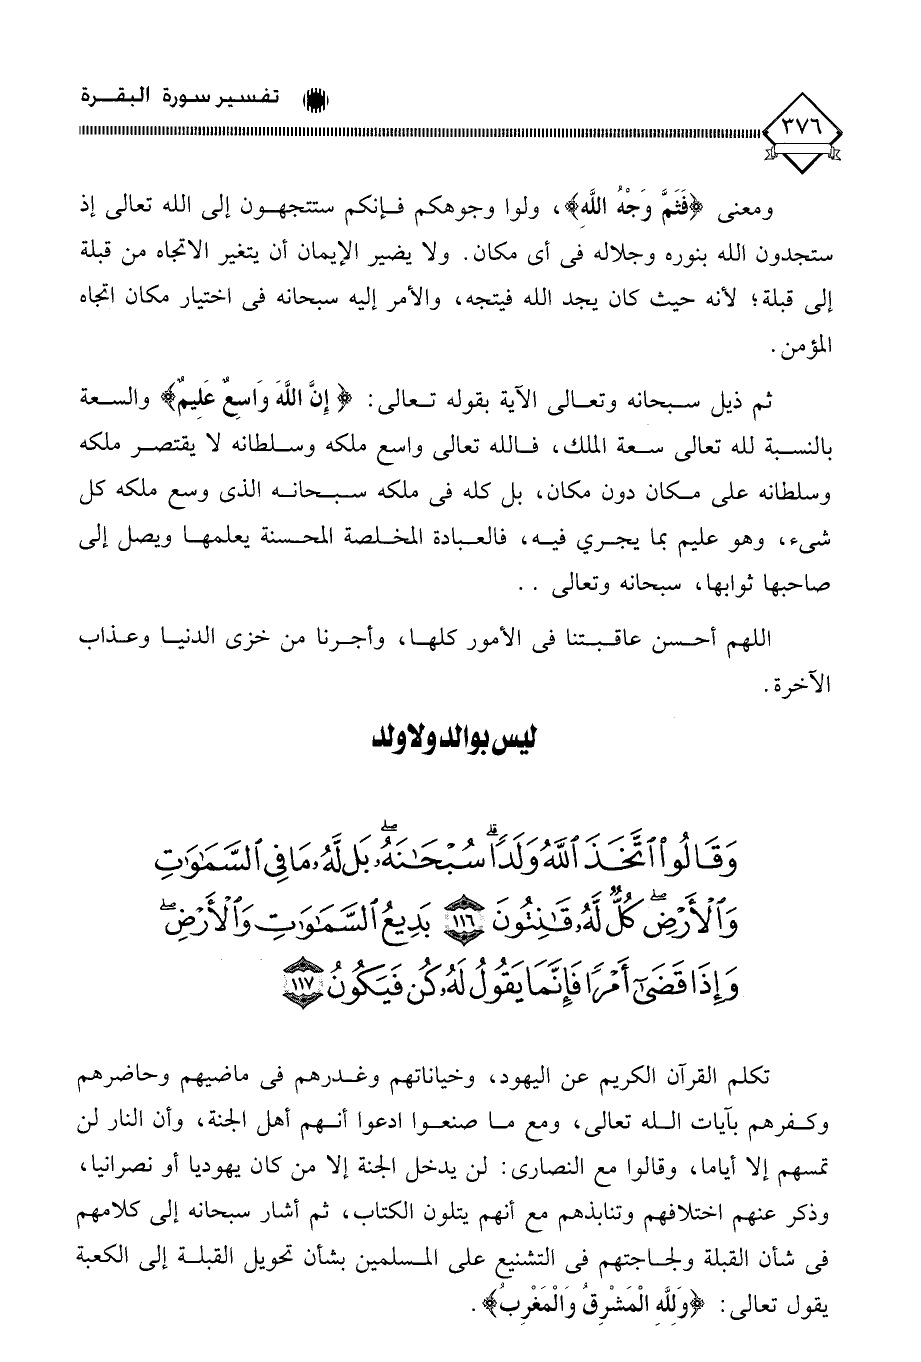 تفسير سورة البقرة
٣٧٦
ومعنى ﴿فَثَمَّ وَجْهُ اللَّهِ﴾، ولوا وجوهكم فإنكم ستتجهون إلى الله تعالى إذ
ستجدون الله بنوره وجلاله فى أى مكان. ولا يضير الإيمان أن يتغير الاتجاه من قبلة
إلى قبلة؛ لأنه حيث كان يجد الله فيتجه، والأمر إليه سبحانه فى اختيار مكان اتجاه
المؤمن.
ثم ذيل سبحانه وتعالى الآية بقوله تعالى: ﴿ إِنَّ اللَّهَ وَاسِعٌ عَلِيمٌ﴾ والسعة
بالنسبة لله تعالى سعة الملك، فالله تعالى واسع ملكه وسلطانه لا يقتصر ملكه
وسلطانه على مكان دون مكان، بل كله فى ملكه سبحانه الذى وسع ملكه كل
شىء، وهو عليم بما يجري فيه، فالعبادة المخلصة المحسنة يعلمها ويصل إلى
صاحبها ثوابها، سبحانه وتعالى . .
اللهم أحسن عاقبتنا فى الأمور كلها، وأجرنا من خزى الدنيا وعذاب
الآخرة.
ليس بوالد ولا ولد
وَقَالُوا۟ ٱتَّخَذَ ٱللَّهُ وَلَدًا ۗ سُبْحَـٰنَهُۥ ۖ بَل لَّهُۥ مَا فِى ٱلسَّمَـٰوَٰتِ
وَٱلْأَرْضِ ۖ كُلٌّ لَّهُۥ قَـٰنِتُونَ ١١٦ بَدِيعُ ٱلسَّمَـٰوَٰتِ وَٱلْأَرْضِ ۖ
وَإِذَا قَضَىٰٓ أَمْرًا فَإِنَّمَا يَقُولُ لَهُۥ كُن فَيَكُونُ ١١٧
تكلم القرآن الكريم عن اليهود، وخياناتهم وغدرهم فى ماضيهم وحاضرهم
وكفرهم بآيات الله تعالى، ومع ما صنعوا ادعوا أنهم أهل الجنة، وأن النار لن
تمسهم إلا أياما، وقالوا مع النصارى: لن يدخل الجنة إلا من كان يهوديا أو نصرانيا،
وذكر عنهم اختلافهم وتنابذهم مع أنهم يتلون الكتاب، ثم أشار سبحانه إلى كلامهم
فى شأن القبلة ولجاجتهم فى التشنيع على المسلمين بشأن تحويل القبلة إلى الكعبة
يقول تعالى: ﴿وَلِلَّهِ الْمَشْرِقُ وَالْمَغْرِبُ﴾.